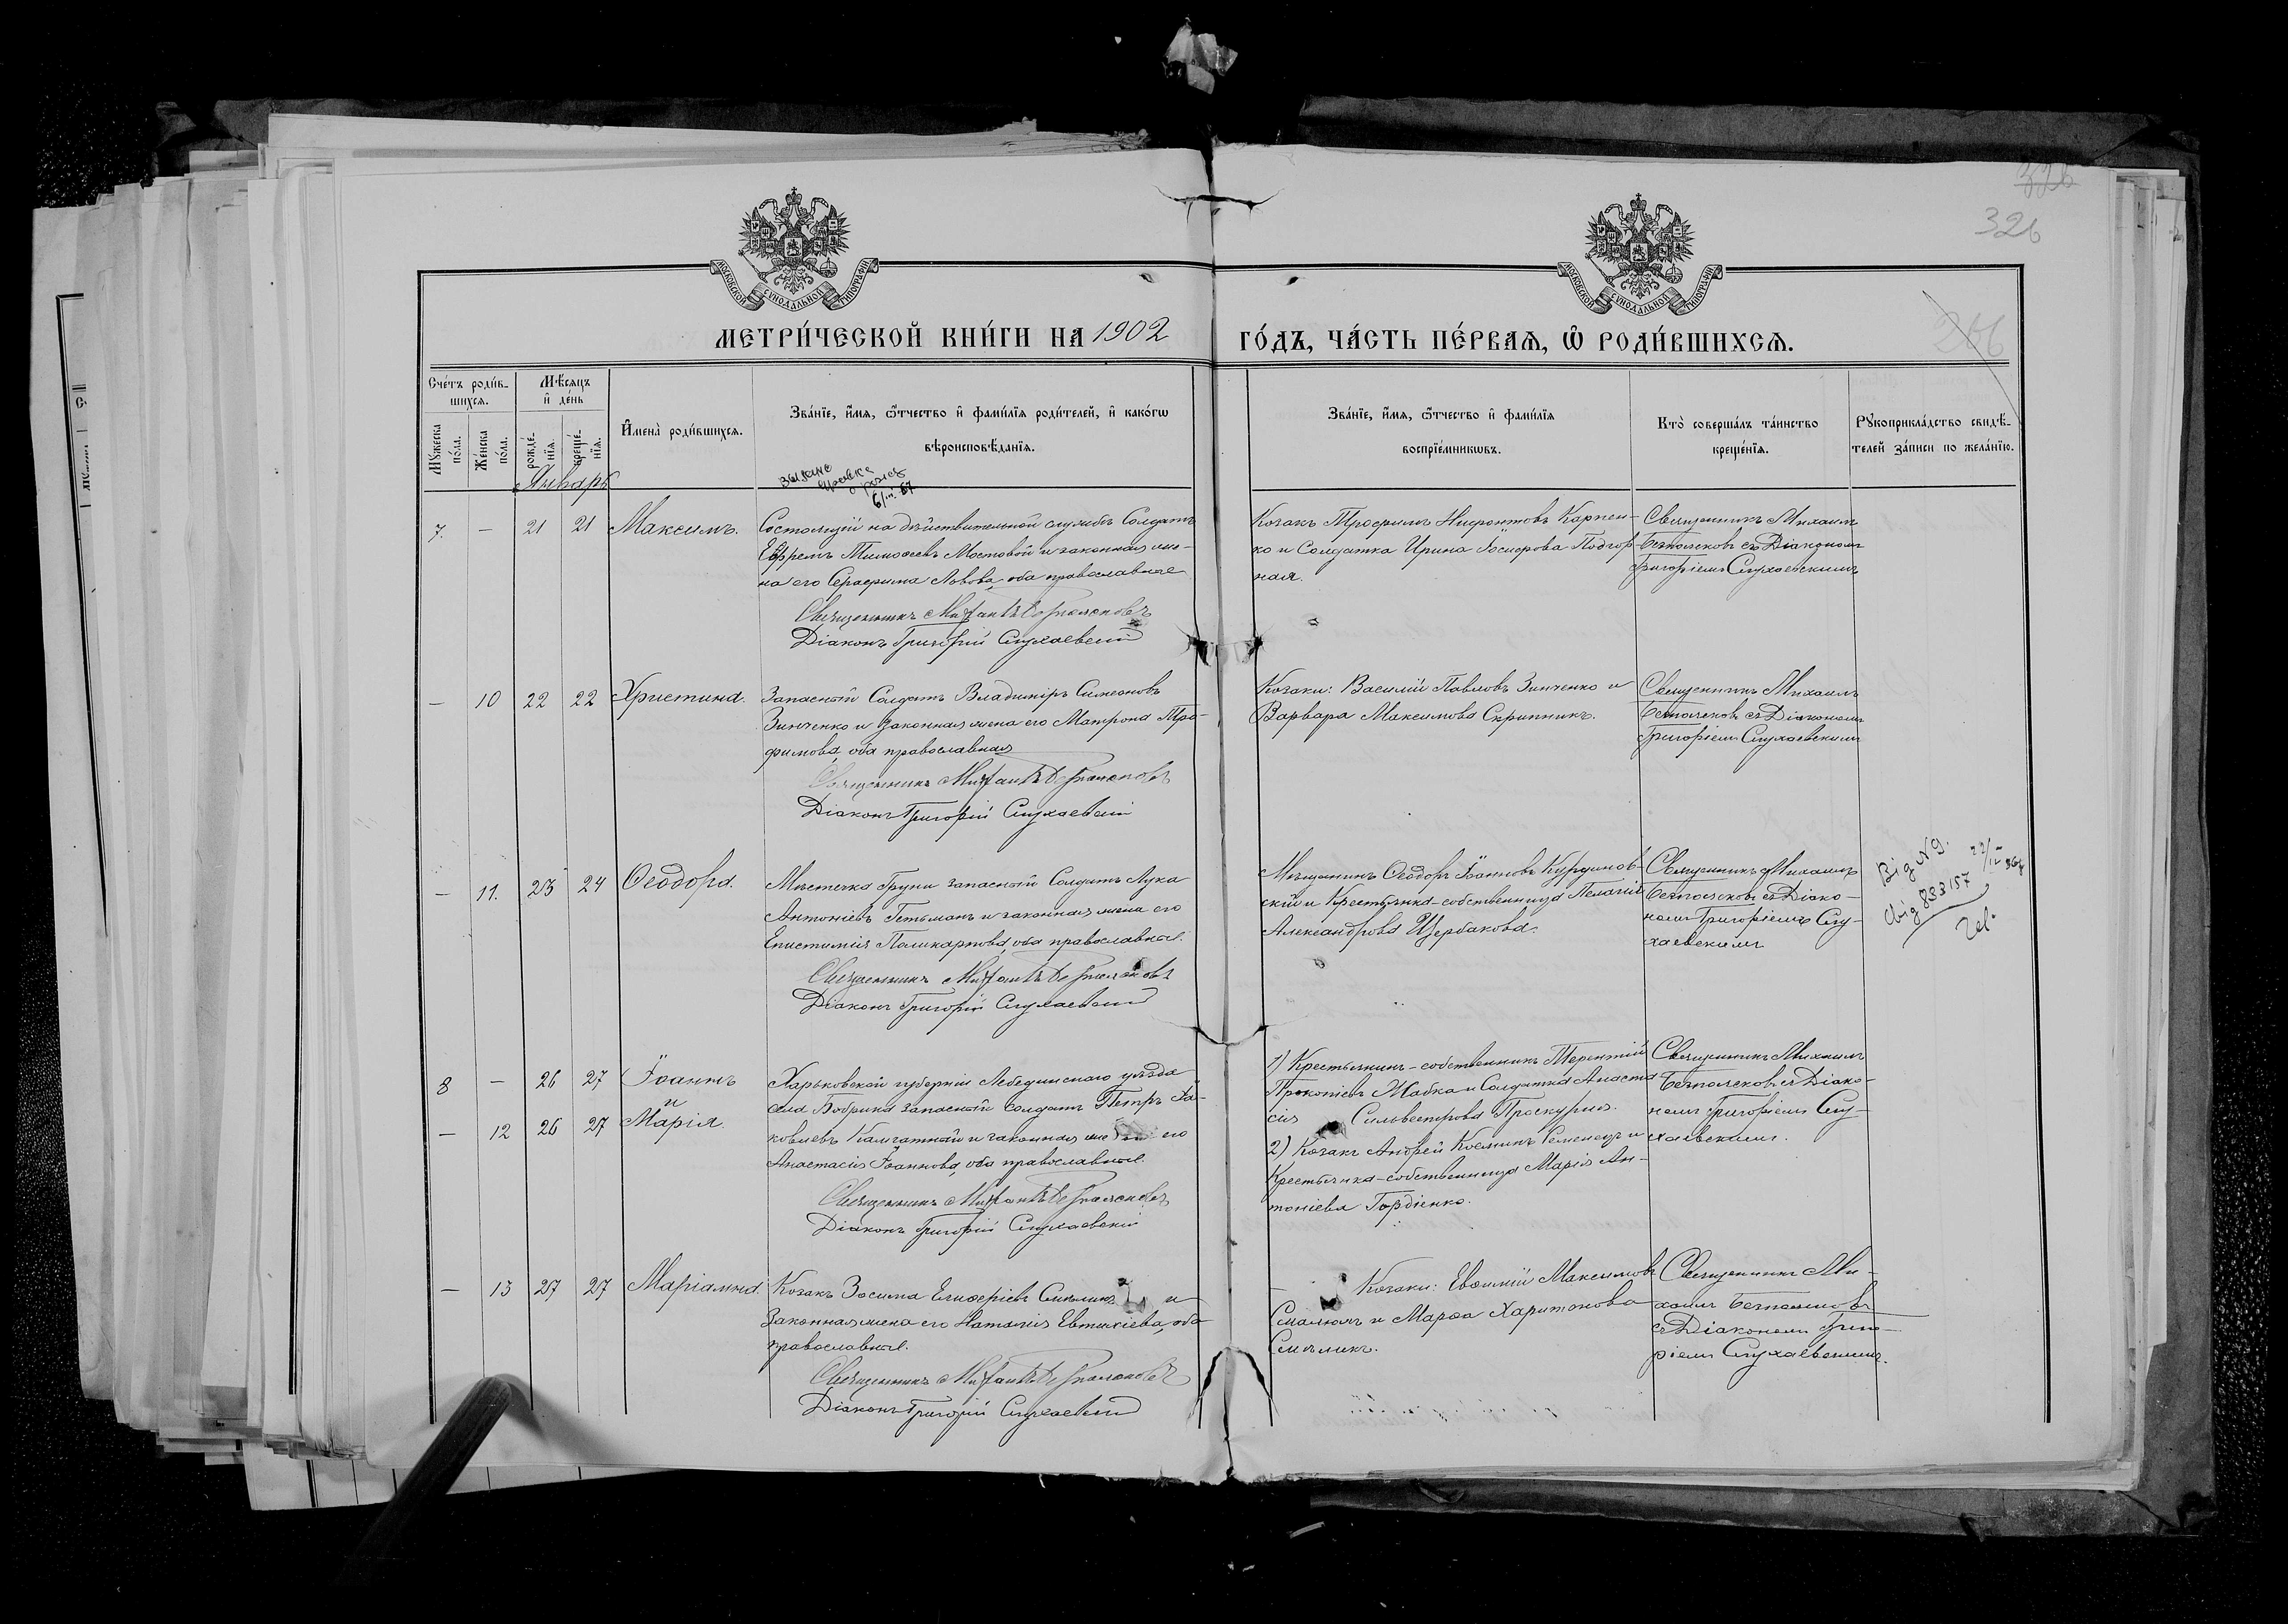 326
326
МОСКОВСКОЙ СУНОДАЛЬНОЙ ТИПОГРАФІИ
МОСКОВСКОЙ СУНОДАЛЬНОЙ ТИПОГРАФІИ
МЕТРИ́ЧЕСКОЙ КНИ́ГИ НА 1902
ГО́ДЪ, ЧА́СТЬ ПЕ́РВАѦ, Ѽ РОДИ́ВШИХСѦ.
266
Сче́тъ роди́в-
шихсѧ.
Мѣ́сѧцъ
и҆ де́нь
Мꙋ́жеска
по́ла.
Же́нска
по́ла.
рожде́-
нїѧ.
креще́-
нїѧ.
И҆мена̀ роди́вшихсѧ.
Зва́нїе, и҆́мѧ, ѻ҆́тчество и҆ фами́лїѧ роди́телей, и҆ како́гѡ
вѣроисповѣ́данїѧ.
Зва́нїе, и҆́мѧ, ѻ҆́тчество и҆ фами́лїѧ
воспрїе́мникѡвъ.
Кто̀ соверша́лъ та́инство
креще́нїѧ.
Рꙋкоприкла́дство свидѣ́-
телей за́писи по жела́нїю.
Январь
7. — 21 21 Максимъ.
Состоящій на дѣйствительной службѣ Солдатъ
Ефремъ Тимоѳеевъ Мостовой и законная же-
на его Серафима Львова, оба православные
Священникъ Михаилъ
Діаконъ Григорій Слухаевскій
Козакъ Трофимъ Нифонтовъ Карпен-
ко и Солдатка Ирина Іосифова Подгор-
ная.
Священникъ Михаилъ
съ Діакономъ
Григоріемъ Слухаевскимъ
— 10 22 22 Христина.
Запасный Солдатъ Владиміръ Симеоновъ
Зинченко и законная жена его Матрона Тро-
фимова, оба православная
Священникъ Михаилъ
Діаконъ Григорій Слухаевскій
Козаки: Василій Павловъ Зинченко и
Варвара Максимова Скрипникъ.
Священникъ Михаилъ
съ Діакономъ
Григоріемъ Слухаевскимъ
— 11. 23 24 Ѳеодора.
Мѣстечка Груни запасный Солдатъ Лука
Антоніевъ Гетьманъ и законная жена его
Епистимія Поликарпова, оба православные.
Священникъ Михаилъ
Діаконъ Григорій Слухаевскій
Мѣщанинъ Ѳеодоръ Іоанновъ Курдинов-
скій и Крестьянка-собственница Пелагія
Александрова Щербакова.
Священникъ Михаилъ
съ Діако-
номъ Григоріемъ Слу-
хаевскимъ
Від N 9.
883157
8 — 26 27 Іоаннъ
и
— 12 26 27 Марія.
Харьковской губерніи Лебединскаго уѣзда
села Бобрика запасный солдатъ Петръ Іа-
ковлевъ Камчатный и законная жена его
Анастасія Іоаннова, оба православные.
Священникъ Михаилъ
Діаконъ Григорій Слухаевскій
1) Крестьянинъ-собственникъ Терентій
Прокопіевъ Жабка и Солдатка Анаста-
сія Сильвестрова Проскурня.
2) Козакъ Андрей Косминъ Семенецъ и
Крестьянка-собственница Марія Ан-
тоніева Гордіенко.
Священникъ Михаилъ
съ Діако-
номъ Григоріемъ Слу-
хаевскимъ.
— 13 27 27 Маріамна.
Козакъ Зосима Елиферіевъ и
Законная жена его Наталія Евтихіева, оба
православные.
Священникъ Михаилъ
Діаконъ Григорій Слухаевскій
Козаки: Евѳимій Максимовъ
и Марѳа Харитонова
Священникъ Ми-
хаилъ
съ Діакономъ Григо-
ріемъ Слухаевскимъ.